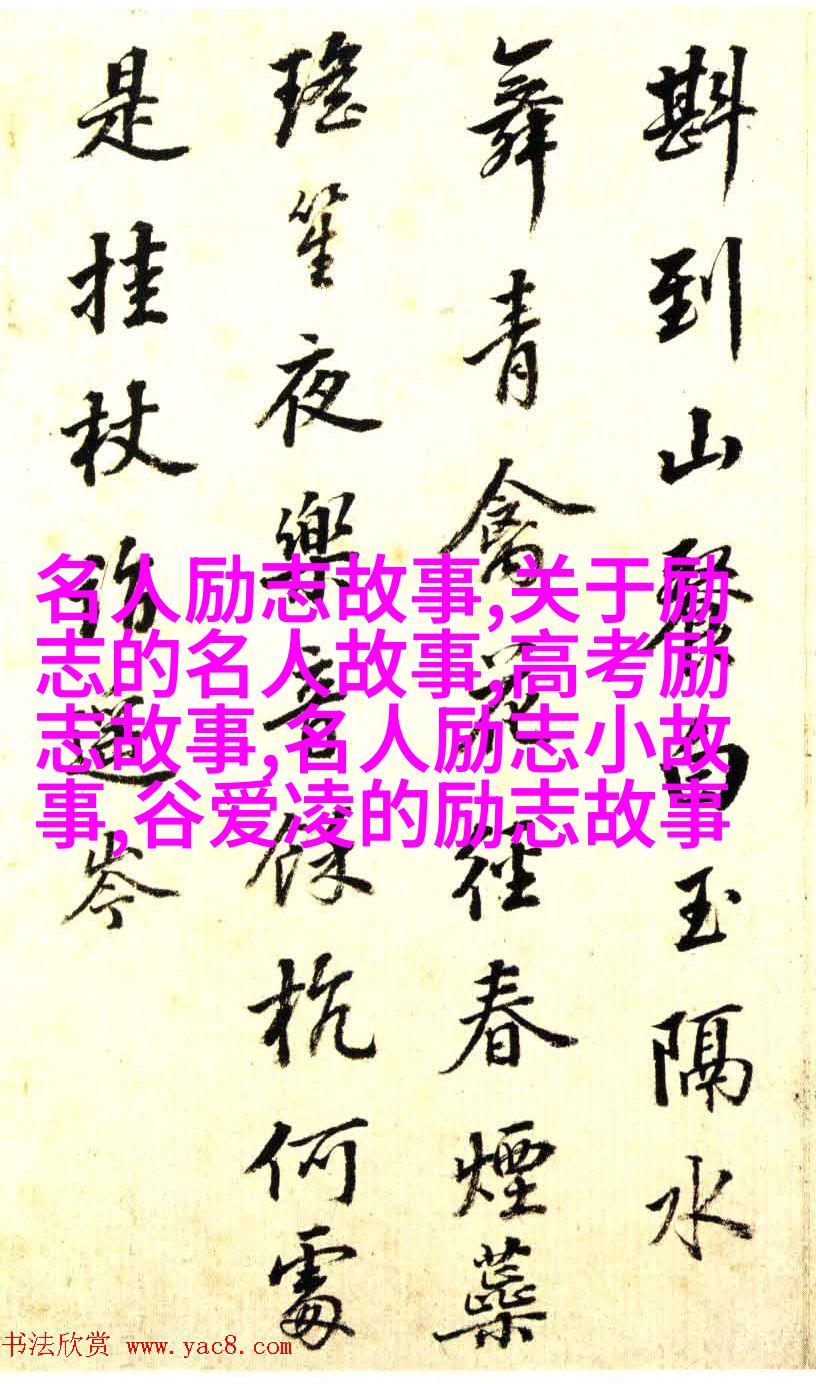 斟到山玉隔水
舞青禽花徑春煙
瑤笙夜樂音餘杭何處
是挂杖訪遥岑
名人励志故事,关于励
志的名人故事,高考励
志故事,名人励志小故
事,谷爱凌的励志故事
书法欣赏 www.yac8.com